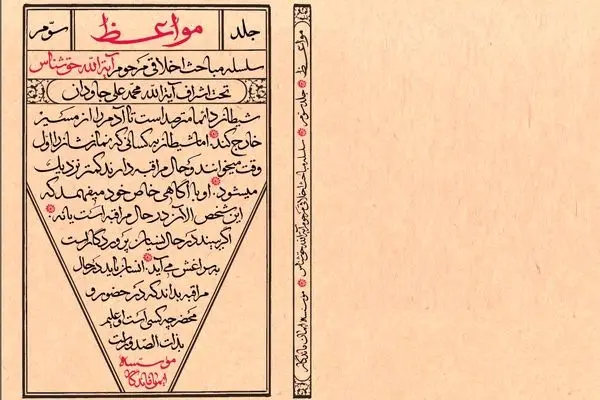 جلد مواعظ سوّم
سلسله مباحث اخلاقی مرحوم آیة الله حق شناس
تحت اشراف آیة الله محمد علی جاودان
شیطان دائما مترصد است تا آدم را از مسیر
خارج کند. اما شیطان به کسانی که نمازشان را اول
وقت میخوانند و حال مراقبه دارند کمتر نزدیک
میشود. او با آگاهی خاص خود میفهمد که
این شخص الآن در حال مراقبه است یا نه.
اگر ببیند در حال نسیان پروردگار است
به سراغش می آید. انسان باید در حال
مراقبه بداند که در حضور و
محضر چه کسی است او علیم
بذات الصدور است
موسسه
ایمان ماندگار
مواعظ جلد سوم سلسله مباحث اخلاقی مرحوم آیة الله حق شناس موسسه ایمان ماندگار